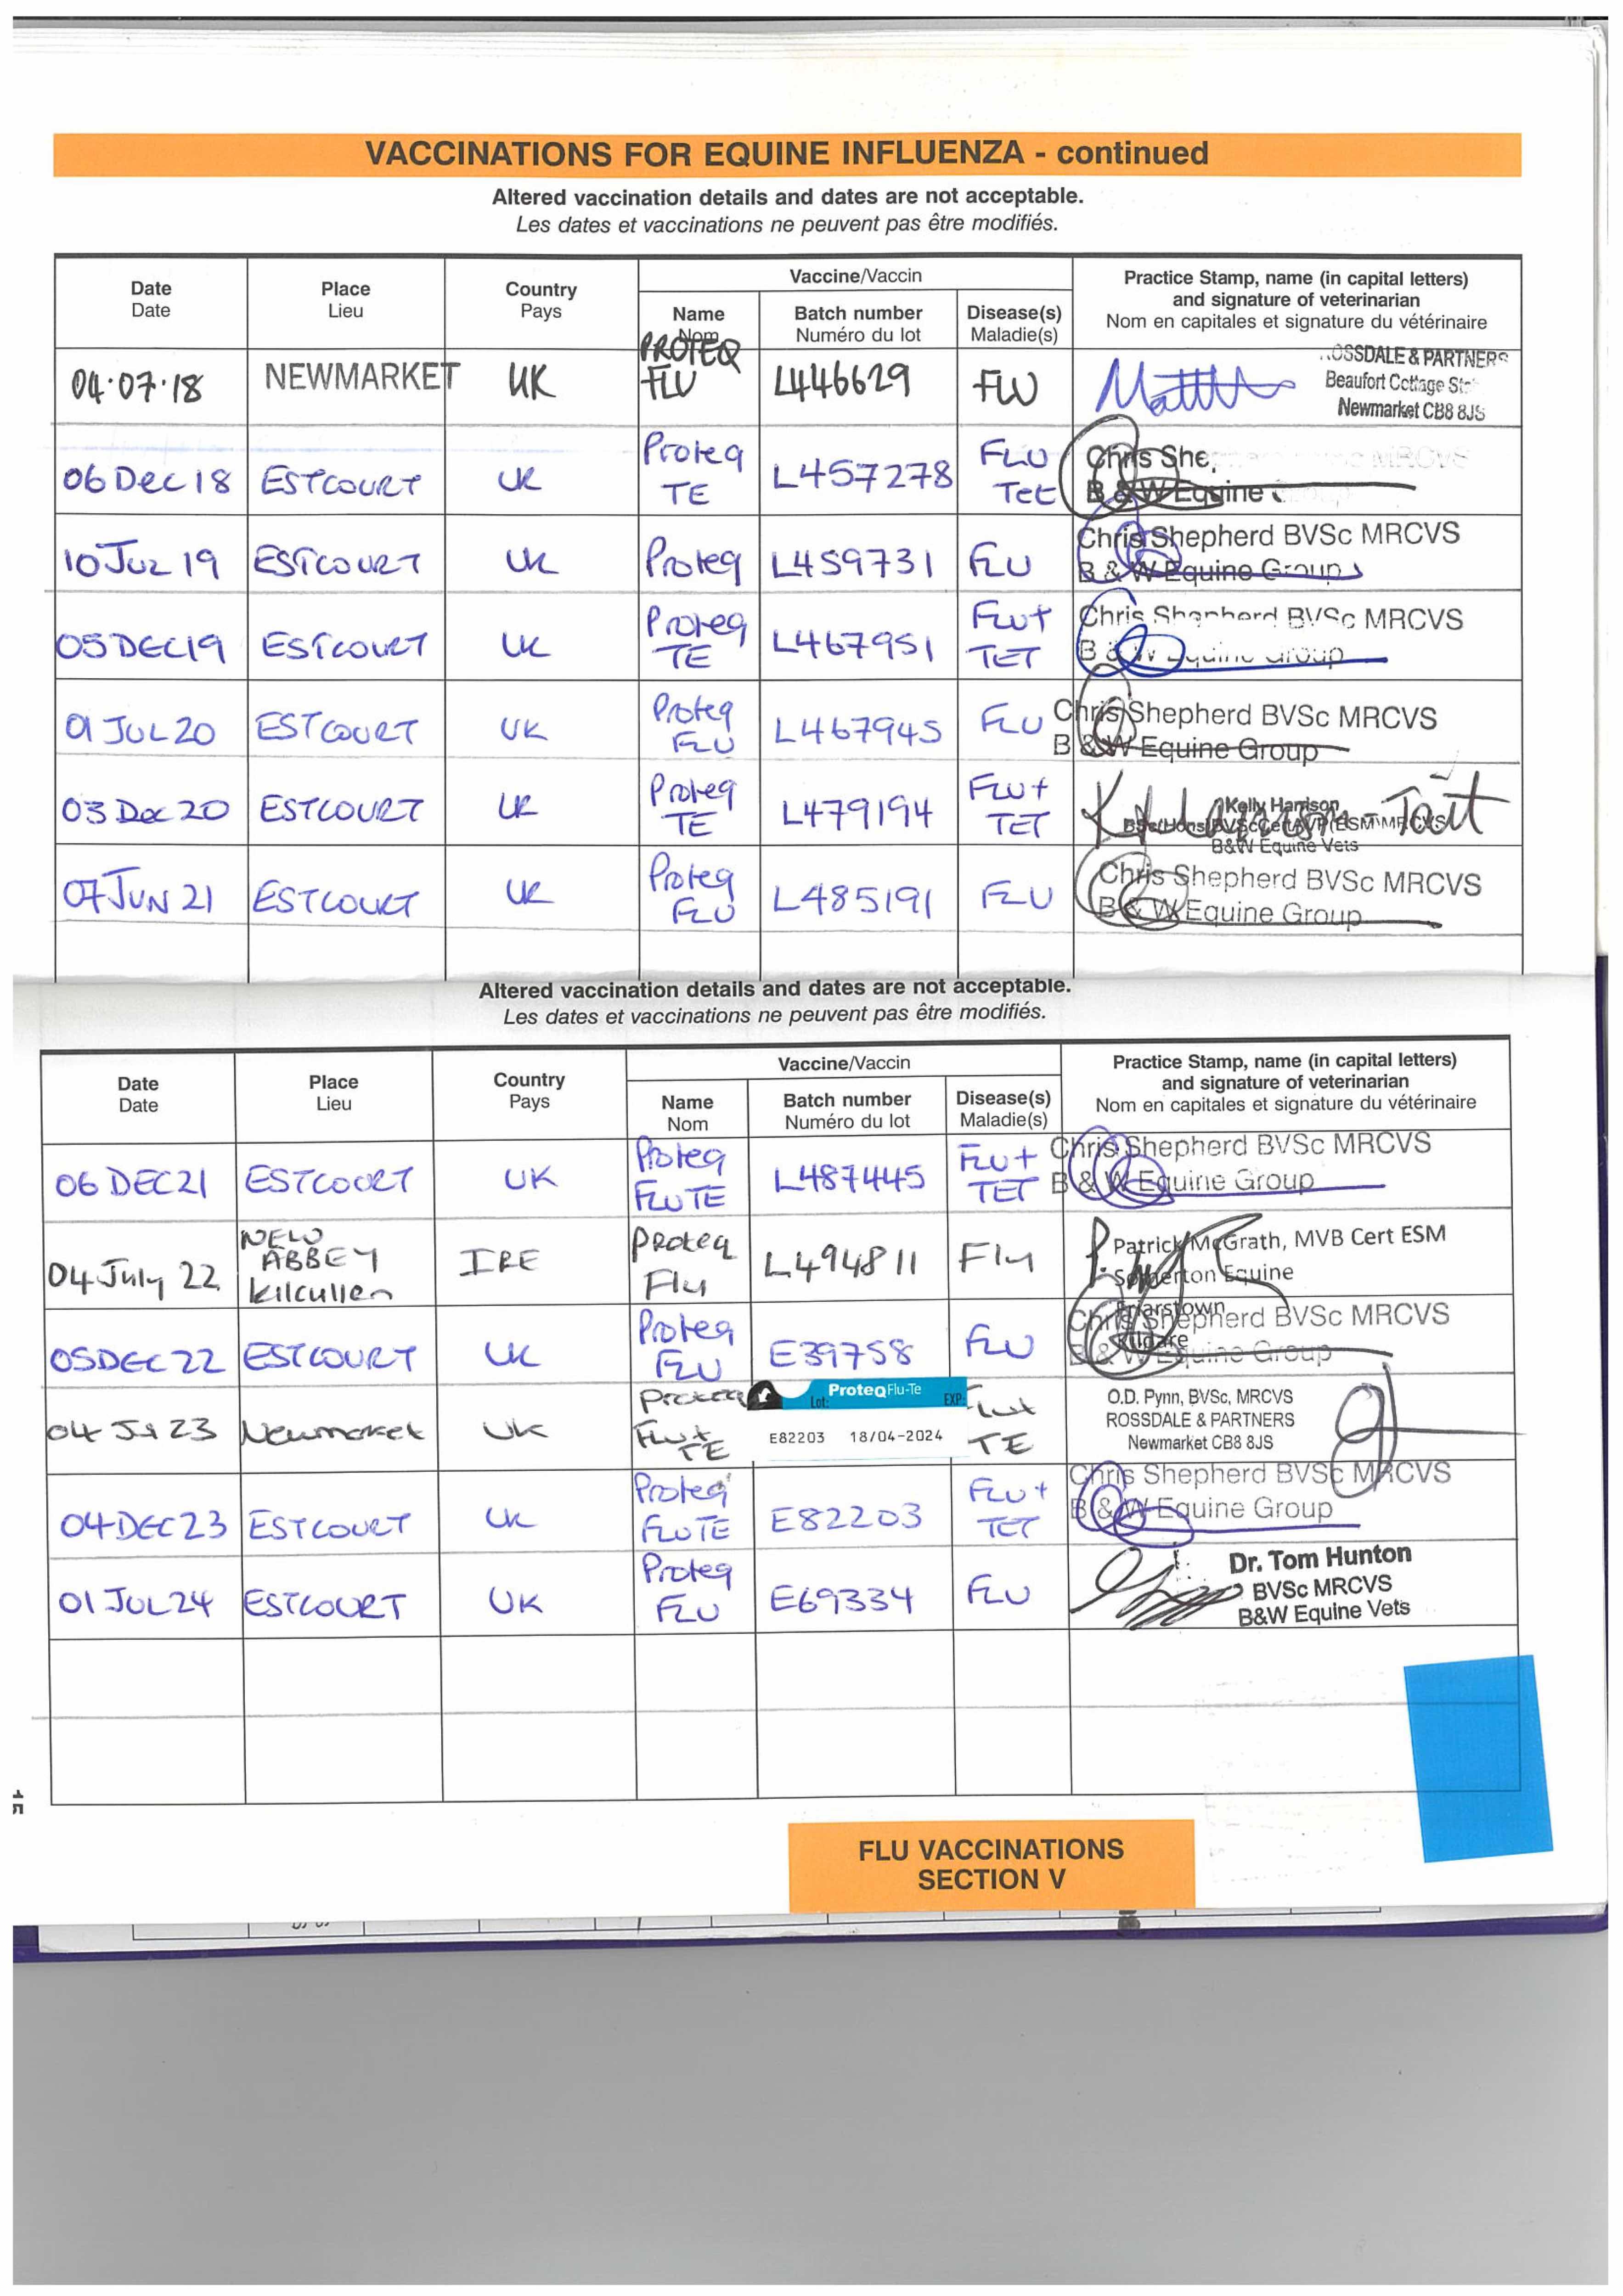 VACCINATIONS FOR EQUINE INFLUENZA - continued
Altered vaccination details and dates are not acceptable.
Les dates et vaccinations ne peuvent pas être modifiés.
Date Place Country Vaccine/Vaccin Practice Stamp, name (in capital letters)
Date Lieu Pays Name Batch number Disease(s) and signature of veterinarian
Nom Numéro du lot Maladie(s) Nom en capitales et signature du vétérinaire
04.07.18 NEWMARKET UK PROTEQ FLU L446629 FLU ROSSDALE & PARTNERS
Beaufort Cottage
Newmarket CB8 8JS
06 Dec 18 ESTCOURT UK Proteq TE L457278 FLU Tet Chris She MRCVS
B & W Equine
10 JUL 19 ESTCOURT UK Proteq L459731 FLU Chris Shepherd BVSc MRCVS
B & W Equine Group
05 DEC 19 ESTCOURT UK Proteq TE L467951 FLU+ TET Chris Shepherd BVSc MRCVS
B & W Equine Group
01 JUL 20 ESTCOURT UK Proteq FLU L467945 FLU Chris Shepherd BVSc MRCVS
B & W Equine Group
03 Dec 20 ESTCOURT UK Proteq TE L479194 FLU+ TET Kelly Harrison
B&W Equine Vets
07 JUN 21 ESTCOURT UK Proteq FLU L485191 FLU Chris Shepherd BVSc MRCVS
B & W Equine Group
Altered vaccination details and dates are not acceptable.
Les dates et vaccinations ne peuvent pas être modifiés.
Date Place Country Vaccine/Vaccin Practice Stamp, name (in capital letters)
Date Lieu Pays Name Batch number Disease(s) and signature of veterinarian
Nom Numéro du lot Maladie(s) Nom en capitales et signature du vétérinaire
06 DEC 21 ESTCOURT UK Proteq FLUTE L487445 FLU+ TET Chris Shepherd BVSc MRCVS
B & W Equine Group
04 July 22 NEW ABBEY Kilcullen IRE Proteq Flu L494811 Flu Patrick McGrath, MVB Cert ESM
Equine
Friarstown
Kildare
05 DEC 22 ESTCOURT UK Proteq FLU E39758 FLU Chris Shepherd BVSc MRCVS
B & W Equine Group
04 23 Newmarket UK Proteq Flu+ TE ProteqFlu-Te Lot: EXP: E82203 18/04-2024 Flu+ TE O.D. Pynn, BVSc, MRCVS
ROSSDALE & PARTNERS
Newmarket CB8 8JS
04 DEC 23 ESTCOURT UK Proteq FLUTE E82203 FLU+ TET Chris Shepherd BVSc MRCVS
B & W Equine Group
01 JUL 24 ESTCOURT UK Proteq FLU E69334 FLU Dr. Tom Hunton
BVSc MRCVS
B&W Equine Vets
15
FLU VACCINATIONS
SECTION V